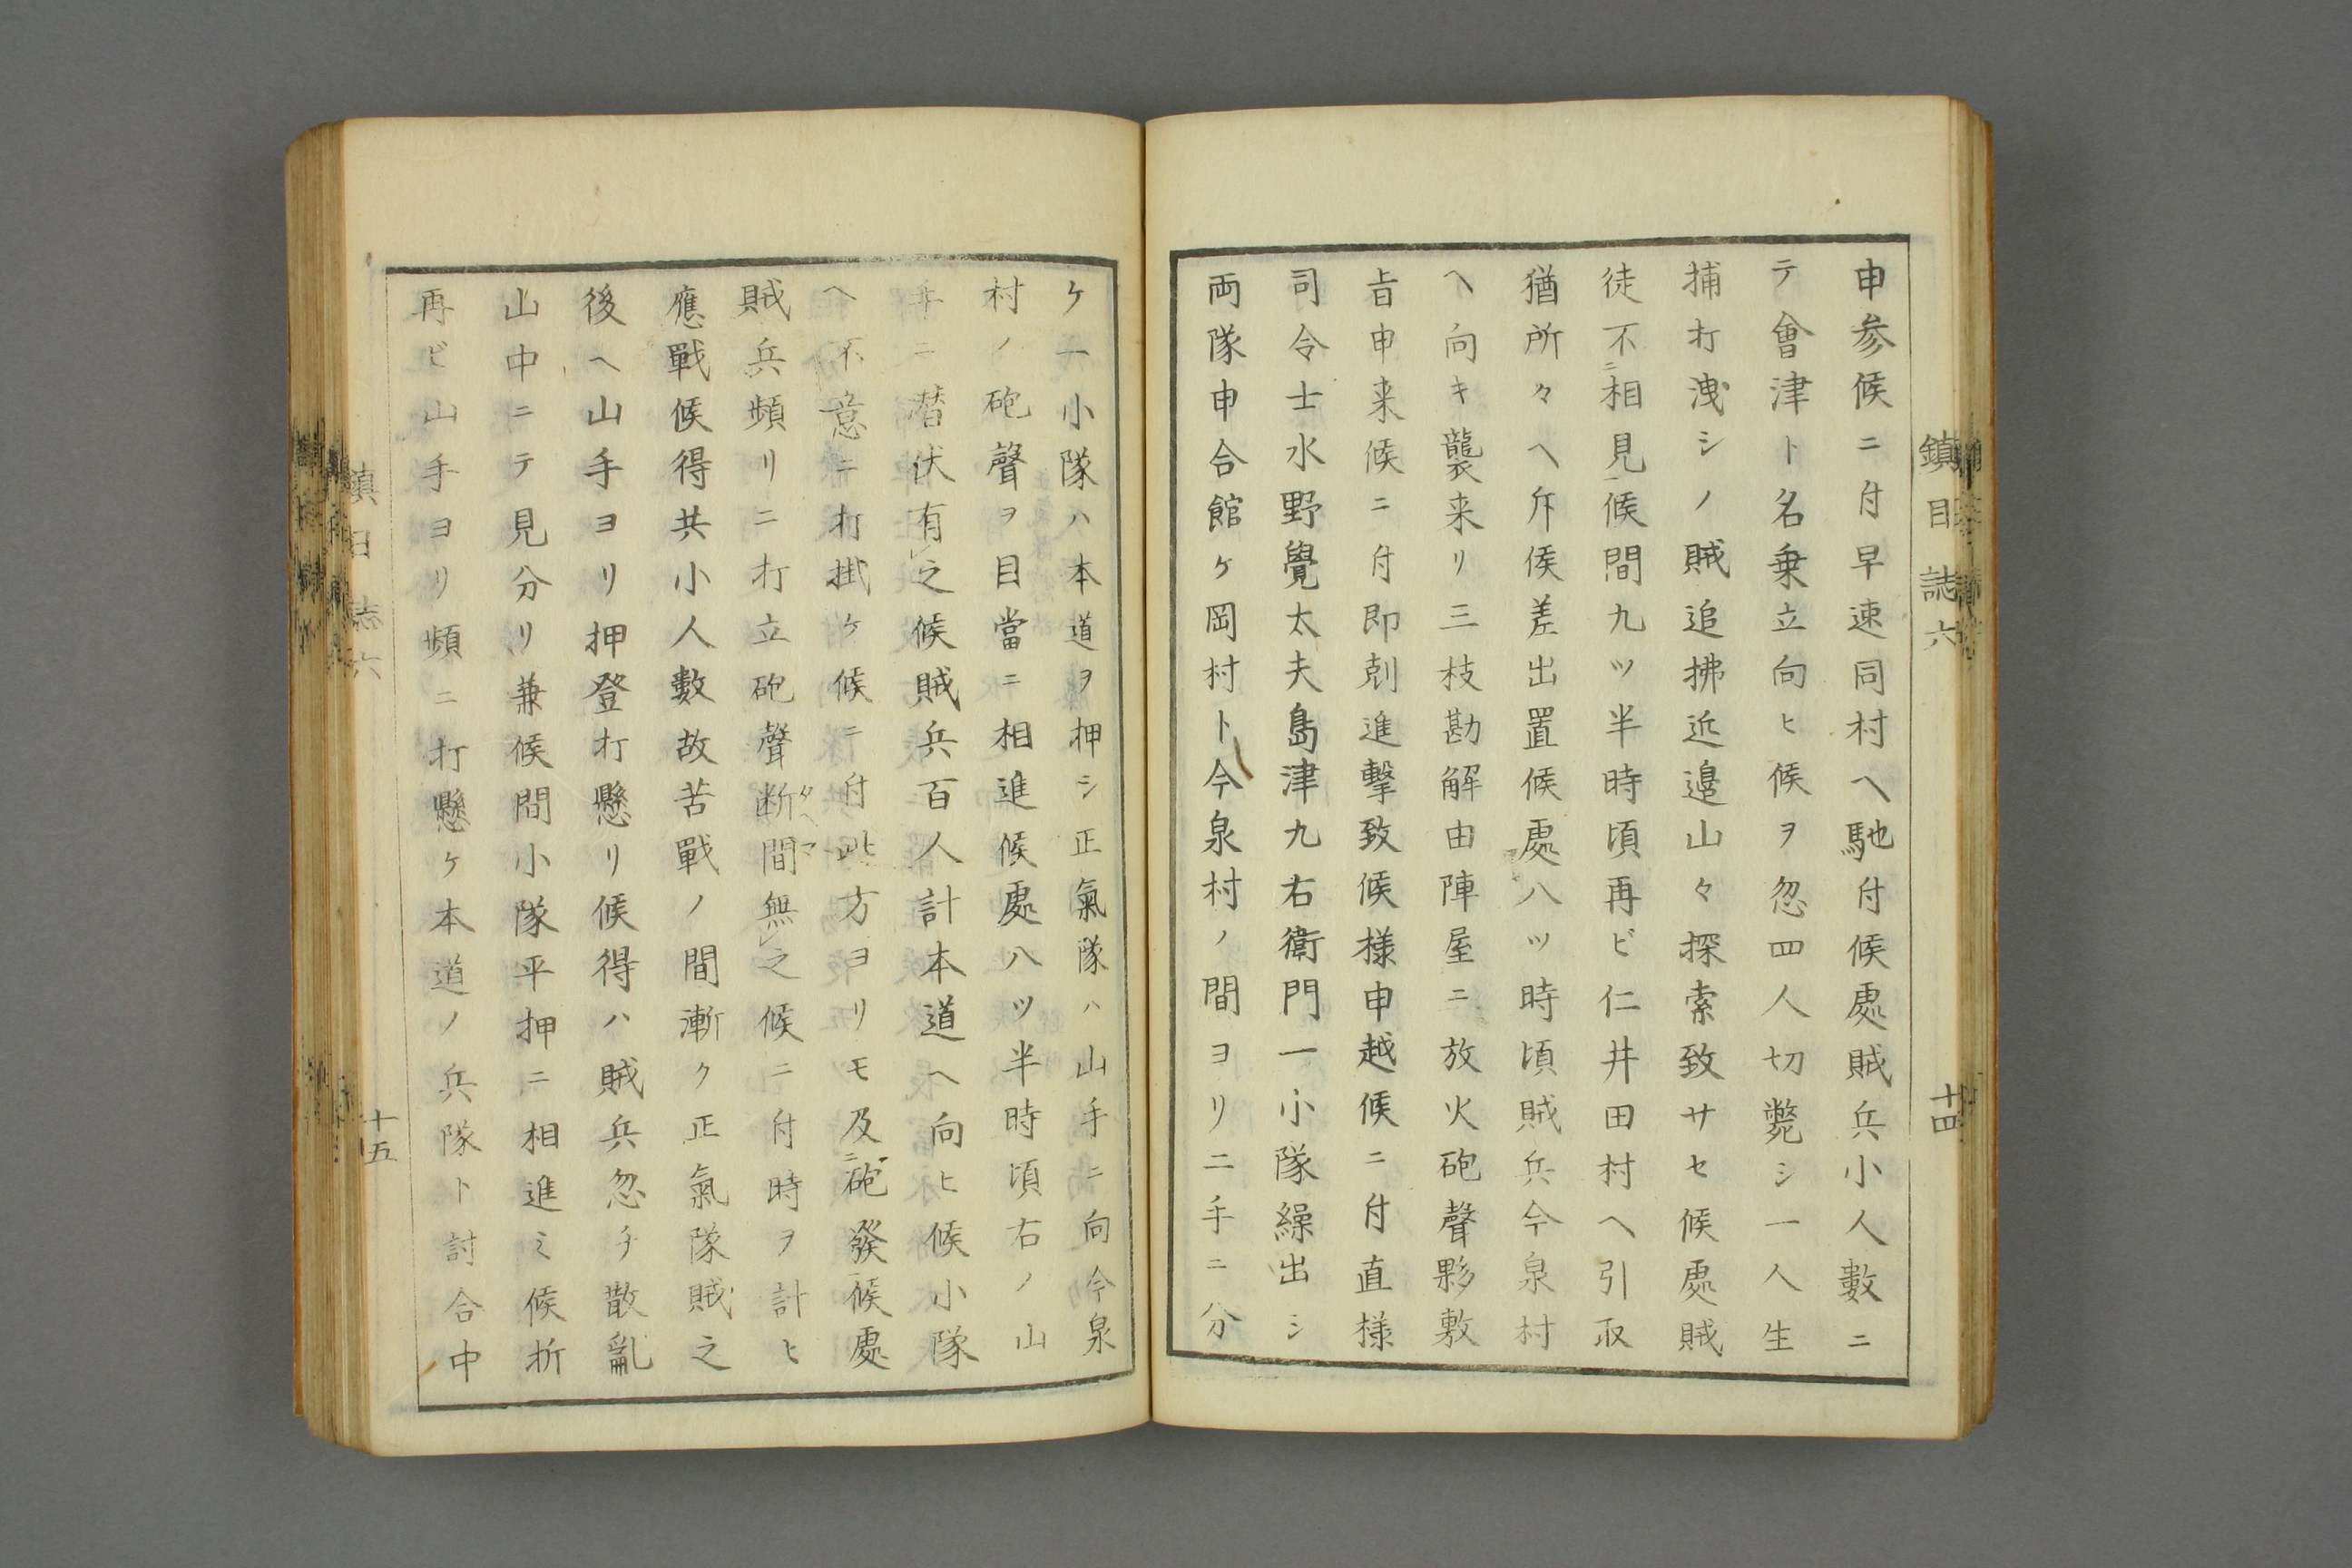 鎮目誌六
十四
申参候ニ付早速同村ヘ馳付候處賊兵小人數ニ
テ會津ト名乗立向ヒ候ヲ忽四人切斃シ一人生
捕打洩シノ賊追拂近邉山々探索致サセ候處賊
徒不ニ相見一候間九ツ半時頃再ビ仁井田村ヘ引取
猶所々ヘ斥候差出置候處八ツ時頃賊兵今泉村
ヘ向キ襲来リ三枝勘解由陣屋ニ放火砲聲夥敷
旨申来候ニ付即剋進擊致候様申越候ニ付直様
司令士水野覺太夫島津九右衛門一小隊繰出シ
両隊申合館ケ岡村ト今泉村ノ間ヨリ二手ニ分
ケ一小隊ハ本道ヲ押シ正氣隊ハ山手ニ向今泉
村ノ砲聲ヲ目當ニ相進候處八ツ半時頃右ノ山
手ニ潜伏有レ之候賊兵百人計本道ヘ向ヒ候小隊
ヘ不意ニ打掛ケ候ニ付此方ヨリモ及ニ砲發一候處
賊兵頻リニ打立砲聲断間無レ之候ニ付時ヲ計ヒ
タヘマ
應戰候得共小人數故苦戰ノ間漸ク正氣隊賊之
後ヘ山手ヨリ押登打懸リ候得ハ賊兵忽チ散亂
山中ニテ見分リ兼候間小隊平押ニ相進ミ候折
再ビ山手ヨリ頻ニ打懸ケ本道ノ兵隊ト討合中
鎮日誌六
十五